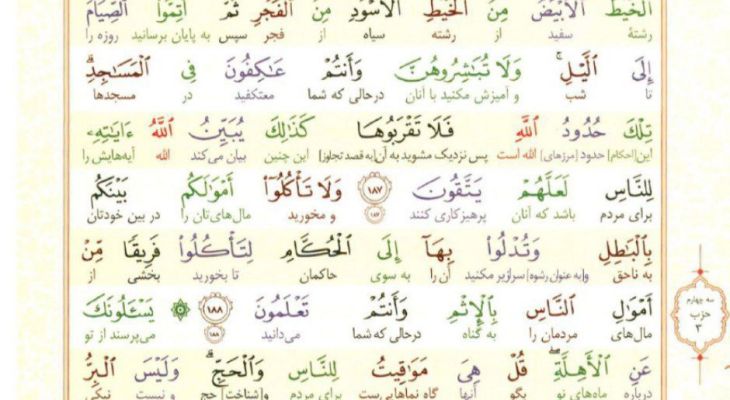 ٱلۡخَيۡطُ ٱلۡأَبۡيَضُ مِنَ ٱلۡخَيۡطِ ٱلۡأَسۡوَدِ مِنَ ٱلۡفَجۡرِۖ ثُمَّ أَتِمُّواْ ٱلصِّيَامَ
رشتهٔ سفید از رشته سیاه از فجر سپس به پایان برسانید روزه را
إِلَى ٱلَّيۡلِۚ وَلَا تُبَٰشِرُوهُنَّ وَأَنتُمۡ عَٰكِفُونَ فِي ٱلۡمَسَٰجِدِۗ
تا شب و آمیزش مکنید با آنان درحالی که شما معتکفید در مسجدها
تِلۡكَ حُدُودُ ٱللَّهِ فَلَا تَقۡرَبُوهَا كَذَٰلِكَ يُبَيِّنُ ٱللَّهُ ءَايَٰتِهِۦ
این[احکام] حدود [مرزهای] الله است پس نزدیک مشوید به آن[به قصد تجاوز] این چنین بیان می‌کند الله آیه‌هایش را
لِلنَّاسِ لَعَلَّهُمۡ يَتَّقُونَ ١٨٧ وَلَا تَأۡكُلُوٓاْ أَمۡوَٰلَكُم بَيۡنَكُم
برای مردم باشد که آنان پرهیزکاری کنند ۱۸۷ و مخورید مال‌های‌تان را در بین خودتان
بِٱلۡبَٰطِلِ وَتُدۡلُواْ بِهَآ إِلَى ٱلۡحُكَّامِ لِتَأۡكُلُواْ فَرِيقٗا مِّنۡ
به ناحق و[به عنوان رشوه] سرازیر مکنید آن را به سوی حاکمان تا بخورید بخشی از
أَمۡوَٰلِ ٱلنَّاسِ بِٱلۡإِثۡمِ وَأَنتُمۡ تَعۡلَمُونَ ١٨٨ ۞ يَسۡـَٔلُونَكَ
مال‌های مردمان را به گناه درحالی که شما می‌دانید ۱۸۸ می‌پرسند از تو
عَنِ ٱلۡأَهِلَّةِۖ قُلۡ هِيَ مَوَٰقِيتُ لِلنَّاسِ وَٱلۡحَجِّۗ وَلَيۡسَ ٱلۡبِرُّ
درباره ماه‌های نو بگو آنها گاه نماهایی‌ست برای مردم و[شناخت] حج و نیست نیکی
سه چهارم
حزب
۳